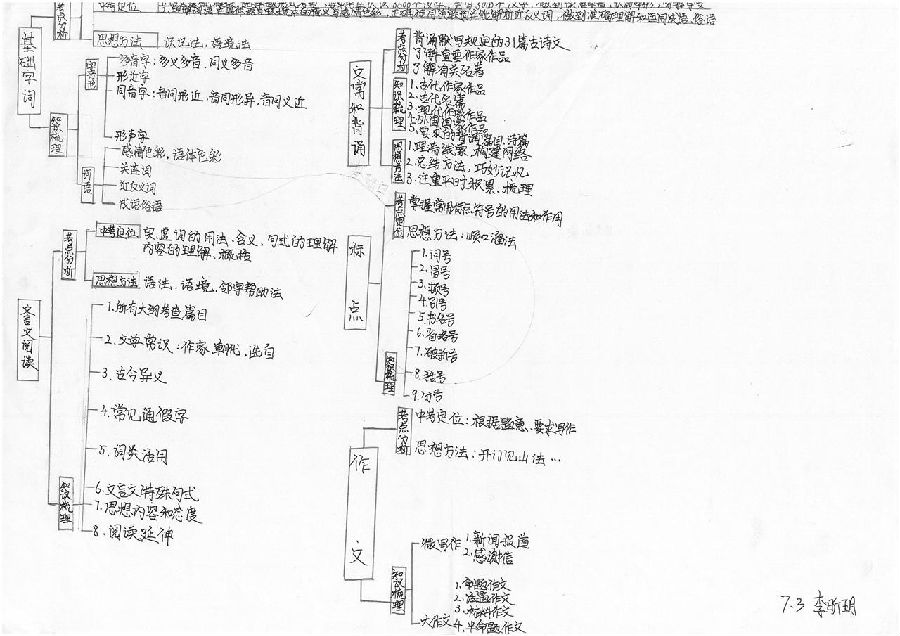 基础字词
考点分析
中考定位
思想方法 语境法
知识梳理
多音字：多义多音、同义多音
形近字
同音字：音同形近、音同形异、音同义近
形声字
词语
感情色彩、语体色彩
关连词
近反义词
成语俗语
文言文阅读
考点分析
中考定位 实虚词的用法、含义、句式的理解
内容的理解、概括
思想方法 语法、语境
知识梳理
1.所有大纲考查篇目
2.文学常识：作家、朝代、出自
3.古今异义
4.常见通假字
5.词类活用
6.文言文特殊句式
7.思想内容和态度
8.阅读延伸
文常如背诵
考点分析
背诵默写规定的31篇古诗文
了解重要作家作品
了解有关名著
知识梳理
1.古代作家作品
3.现代作家作品
4.外国作家作品
思想方法
1.理清线索，构建网络
2.总结方法，巧妙记忆
3.注重平时积累、梳理
标点
掌握常用标点符号的用法和作用
思想方法：顺口溜法
知识梳理
1.问号
2.冒号
3.顿号
4.引号
5.书名号
6.省略号
7.破折号
8.括号
9.句号
作文
考点分析
中考定位：根据题意、要求写作
思想方法：开门见山法…
知识梳理
微写作
1.新闻报道
2.感谢信
大作文
1.命题作文
2.话题作文
3.材料作文
4.半命题作文
7.3